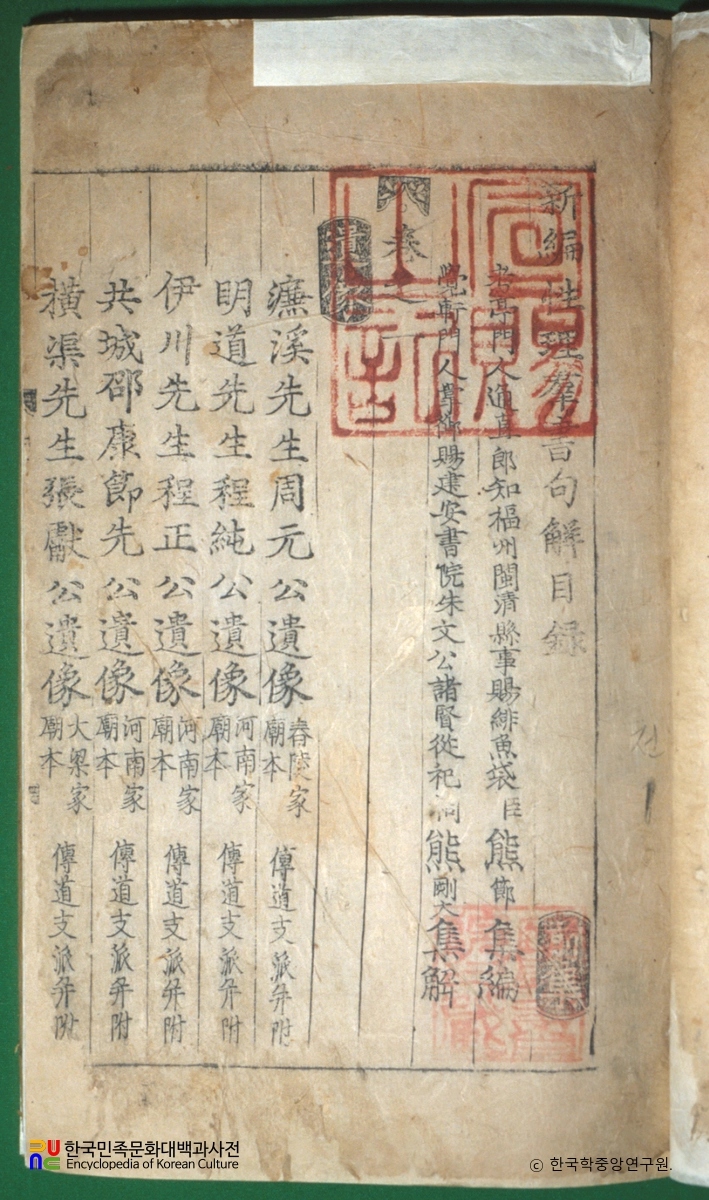 新編性理羣書句解目録
前集
考亭門人通直郎知福州閩清縣事賜緋魚袋臣熊節集編
覺軒門人掌御賜建安書院朱文公諸賢從祀祠熊剛大集解
卷之一
遺像
濂溪先生周元公遺像 舂陵家廟本 傳道支派并附
明道先生程純公遺像 河南家廟本 傳道支派并附
伊川先生程正公遺像 河南家廟本 傳道支派并附
共城邵康節先公遺像 河南家廟本 傳道支派并附
橫渠先生張獻公遺像 大梁家廟本 傳道支派并附
한국민족문화대백과사전
Encyclopedia of Korean Culture
© 한국학중앙연구원.